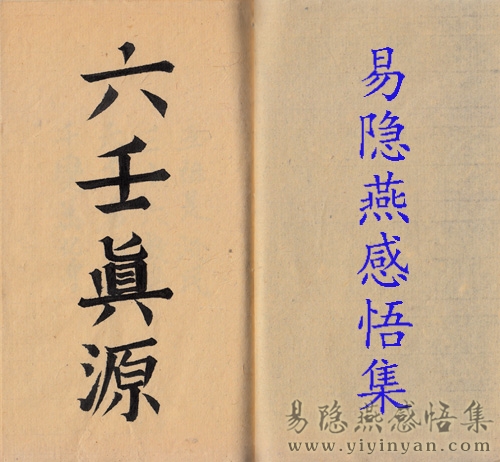 六壬眞源
易隐燕感悟集
易隐燕感悟集
www.yiyinyan.com